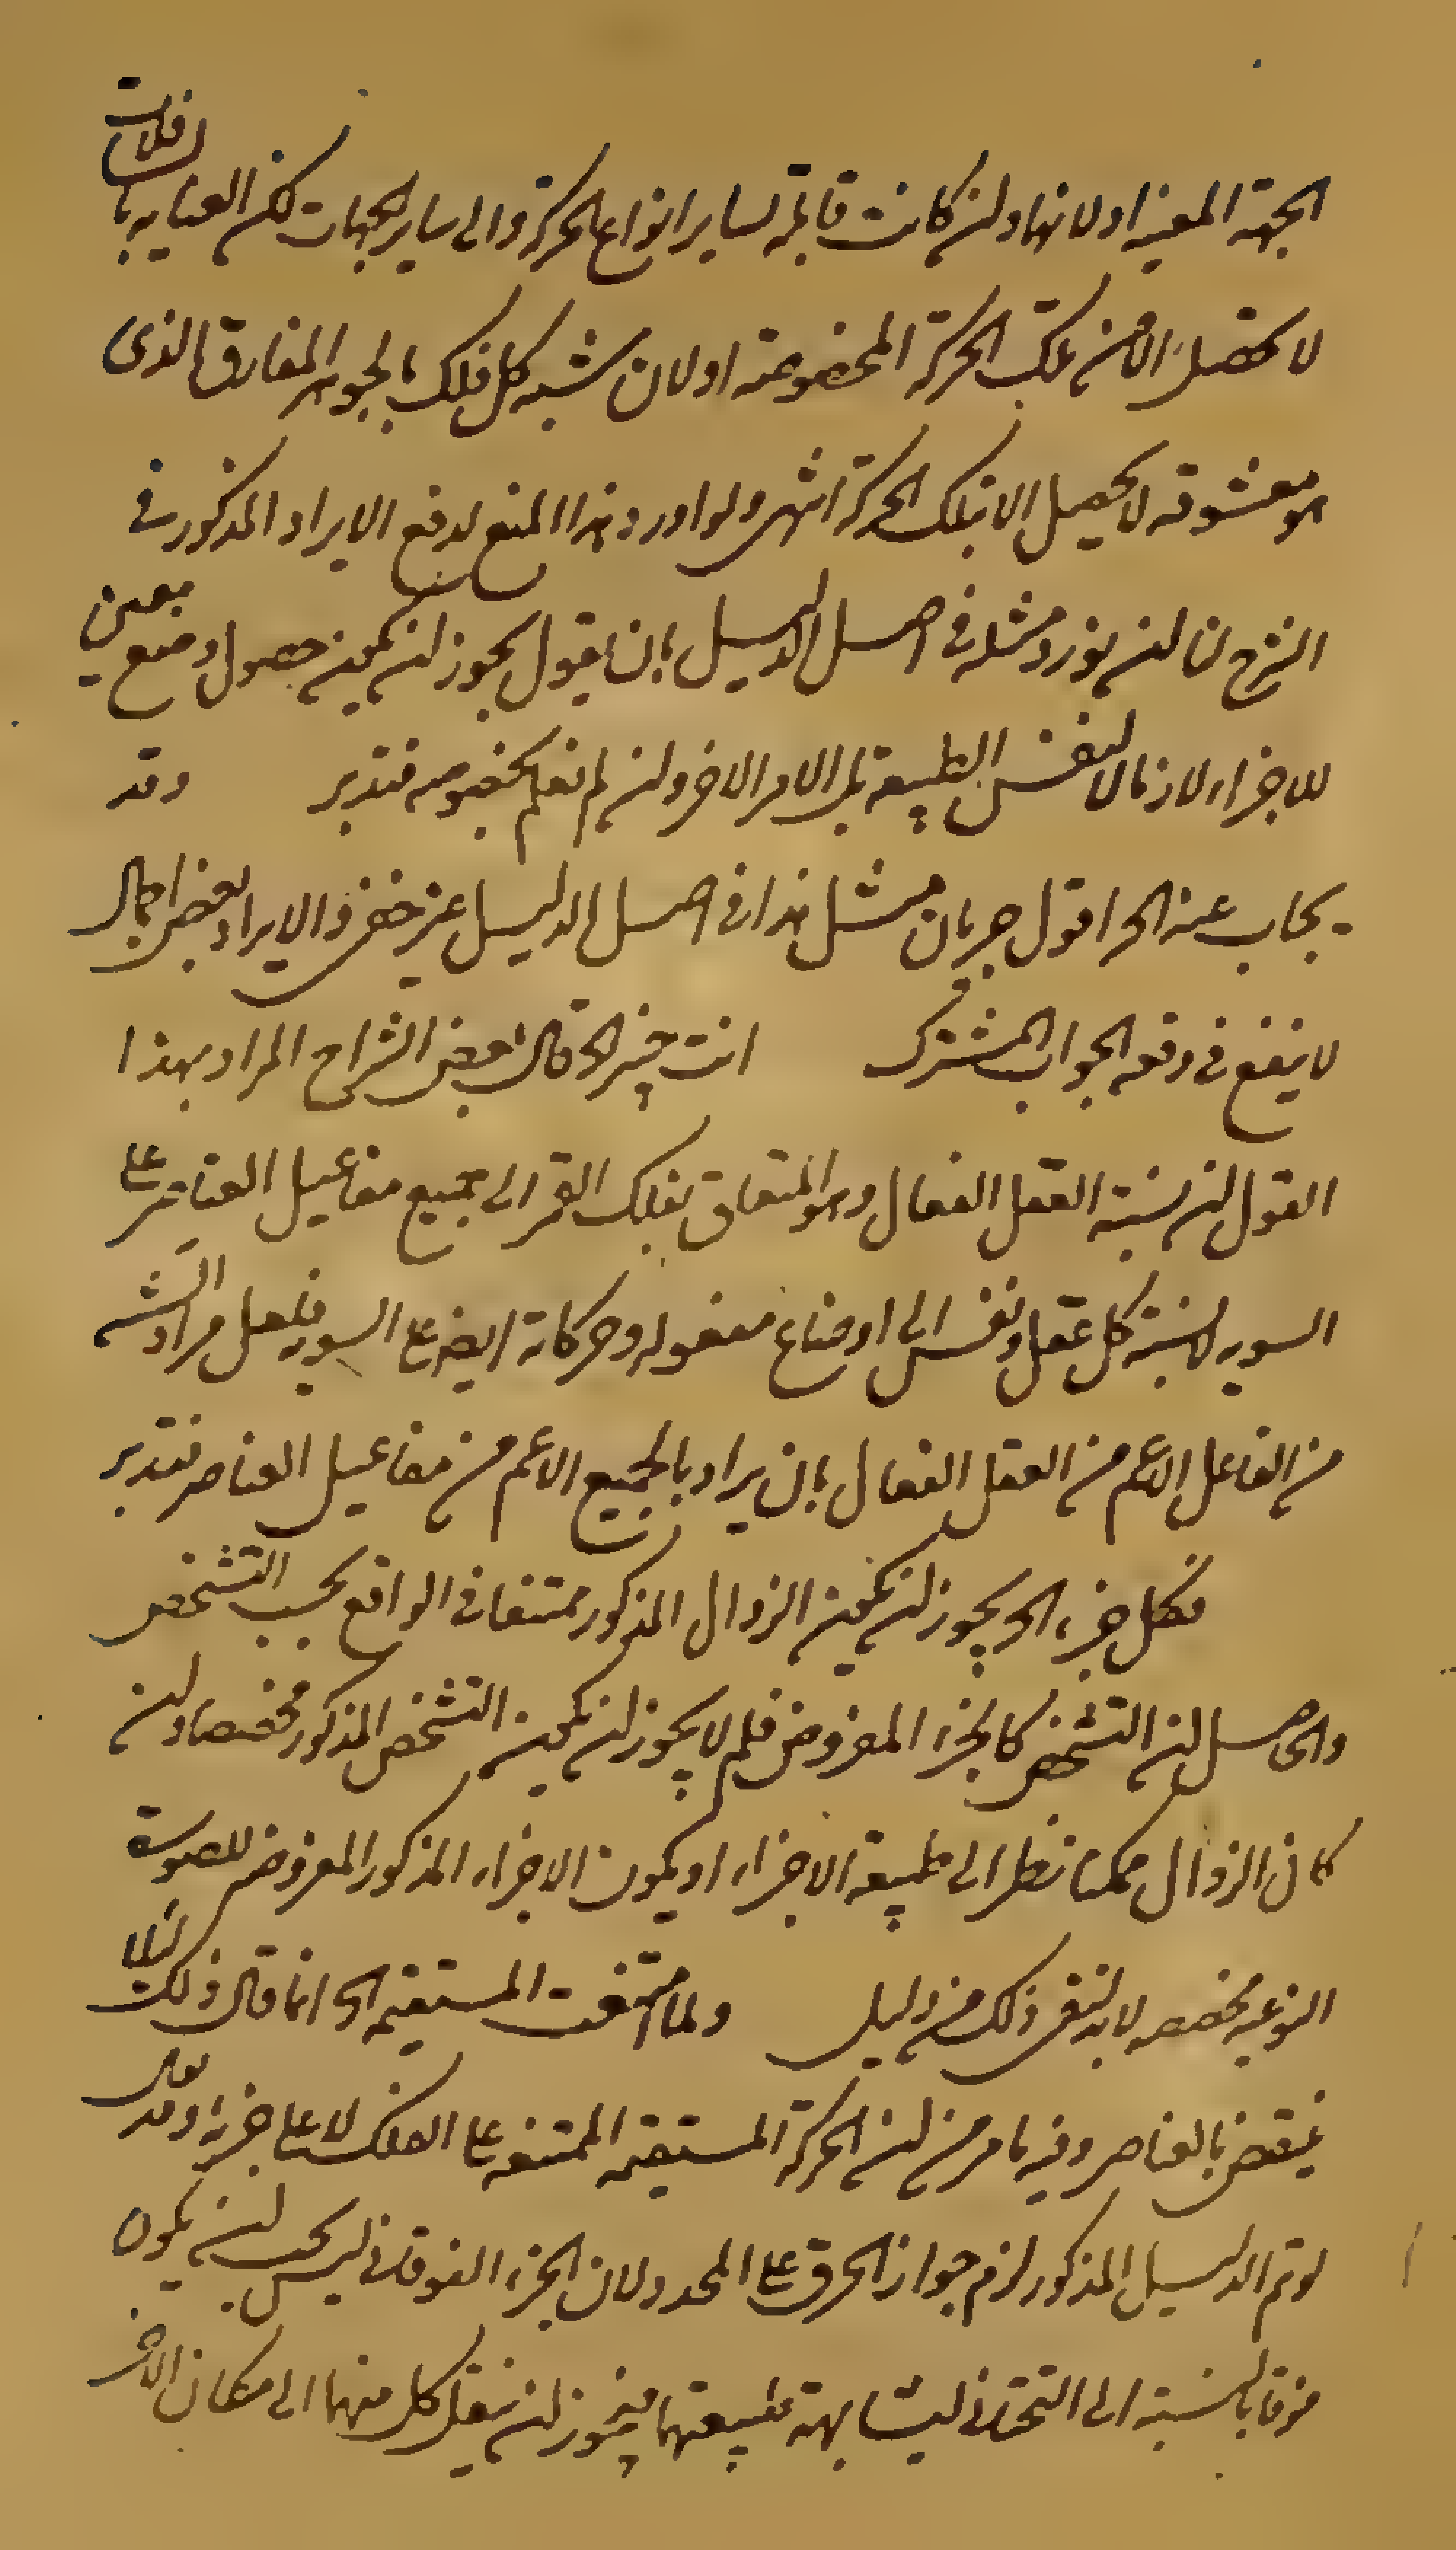 الجهة المعينة او لانها وان كانت قابلة لساير انواع الحركة والى ساير الجهات لكن العناية بالسافلات
لا تحصل الا من تلك الحركة المخصوصة او لان تشبه كل فلك بالجوهر المفارق الذى
هو معشوقه لا يحصل الا بتلك الحركة انتهى ولو اورد هذا المنع لدفع الايراد المذكور فى
الشرح لنا ان نورد مثله فى اصل الدليل بان يقول يجوز ان يكون حصول وضع معين
للاجزاء لازما لا لنفس الطبيعة بل لامر الاخر وان لم نعلم بخصوصه فتدبر وقد
يجاب عنه الخ اقول جريان مثل هذا فى اصل الدليل غير خفى والايراد بعض اجمالى
لا ينفع فى دفعه الجواب المشترك انت خبير الخ قال بعض الشراح المراد بهذا
القول ان نسبة العقل الفعال وهو المتعلق بفلك القمر الى جميع مفاعيل العناصر على
السوية نسبة كل عقل ونفس الى اوضاع مفعوله وحركاته ايضا على السوية فلعل مراد الش
من الفاعل الاعم من العقل الفعال بان يراد بالجميع الاعم من مفاعيل العناصر فتدبر
فكل جزء الخ يجوز ان يكون الزوال المذكور ممتنعا فى الواقع بحسب التشخص
والحاصل ان التشخص كالجزء المفروض فلم لا يجوز ان يكون التشخص المذكور مخصصا وان
كان الزوال ممكنا نظرا الى طبيعة الاجزاء او يكون الاجزاء المذكور المعروض للصورة
النوعية مخصصه لا بد لنفى ذلك من دليل ولما امتنعت المستقيمة الخ انما قال ذلك لئلا
ينتقض بالعناصر وفيه ما مر من ان الحركة المستقيمة الممتنعة على الفلك لا على جزءيه وقد يقال
لو تم الدليل المذكور لزم جواز الخرق على المحدد لان الجزء الفوقانى ليس يجب ان يكون
فوقا بالنسبة الى التحتانى لتشابهة طبيعتهما فيجوز ان ينتقل كل منهما الى مكان الاخر